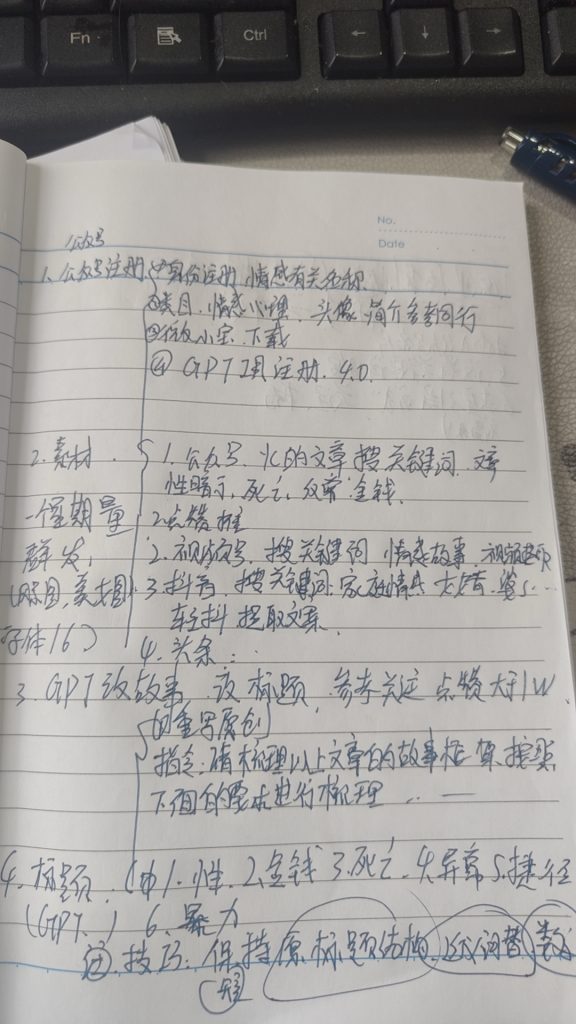 Fn
Ctrl
No.
Date
公众号
1. 公众号注册 ①身份注册 情感有关名称
②类目. 情感心理. 头像 简介参考同行
③ 小宝. 下载
④ GPT 注册. 4.0.
2. 素材. 1. 公众号. 的文章 搜关键词.
性暗示, 死亡, 金钱.
一个星期量 2 点赞推
群发, 2. 视频号, 搜关键词 情感故事.
3. 抖音, 搜关键词. 家庭情
轻抖 提取文案.
字体16) 4. 头条..
3. GPT 改故事 改标题, 参考关注 点赞大于1W
重写原创
指令: 请梳理以上文章的故事框架. 按照
下面的要求进行梳理 ...
4. 标题. 1. 性. 2. 金钱 3. 死亡. 4. 异常 5. 捷径
(GPT.) 6. 暴力
技巧: 保持原标题结构. 词替